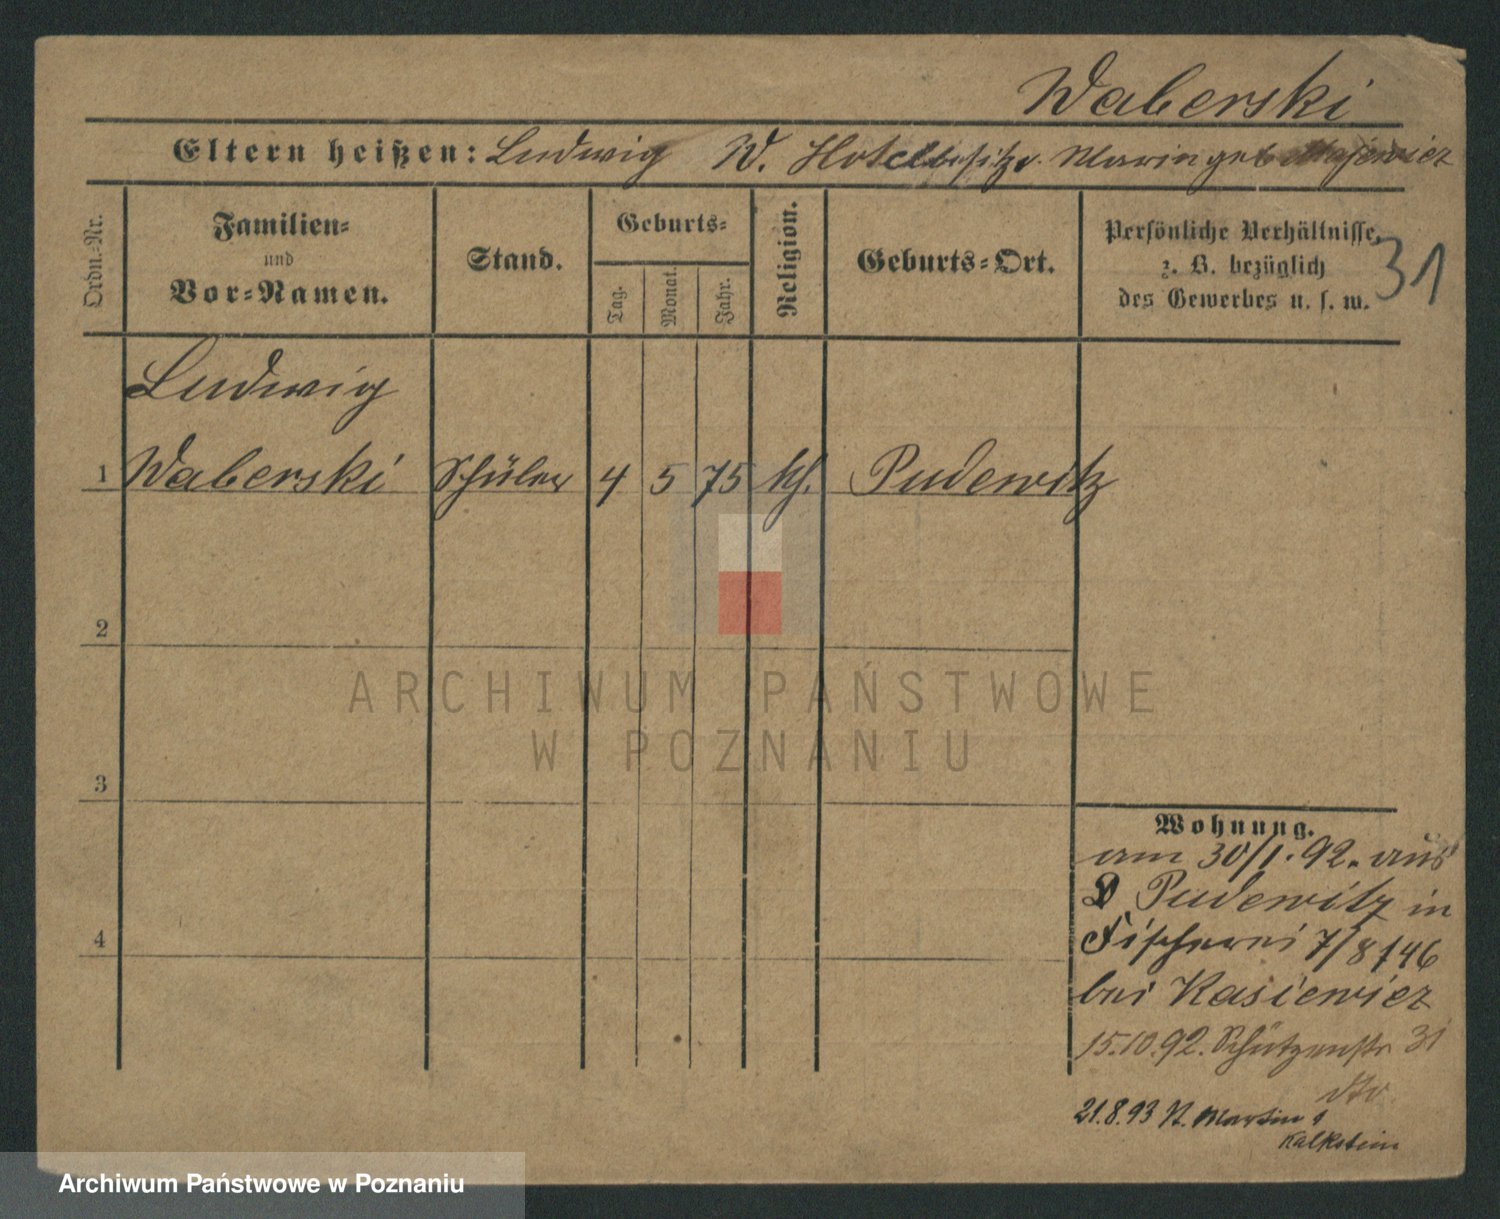 Waberski
Eltern heißen: Ludwig W. Hotelbesitzr. Marin geb
Ordn.-Nr.
Familien-
und
Vor-Namen.
Stand.
Geburts-
Tag.
Monat.
Jahr.
Religion.
Geburts-Ort.
Persönliche Verhältnisse,
z. B. bezüglich
des Gewerbes u. s. w.
31
Ludwig
1 Waberski Schüler 4 5 75 kth. Pudewitz
2
3
4
Wohnung.
am 30/1. 92. aus
Pudewitz in
Fischerei 7/8 146
bei Kasiewicz
15.10.92. Schützenstr 31
dto
21.8.93 St. Martin
Kalkstein
ARCHIWUM PAŃSTWOWE
W POZNANIU
Archiwum Państwowe w Poznaniu